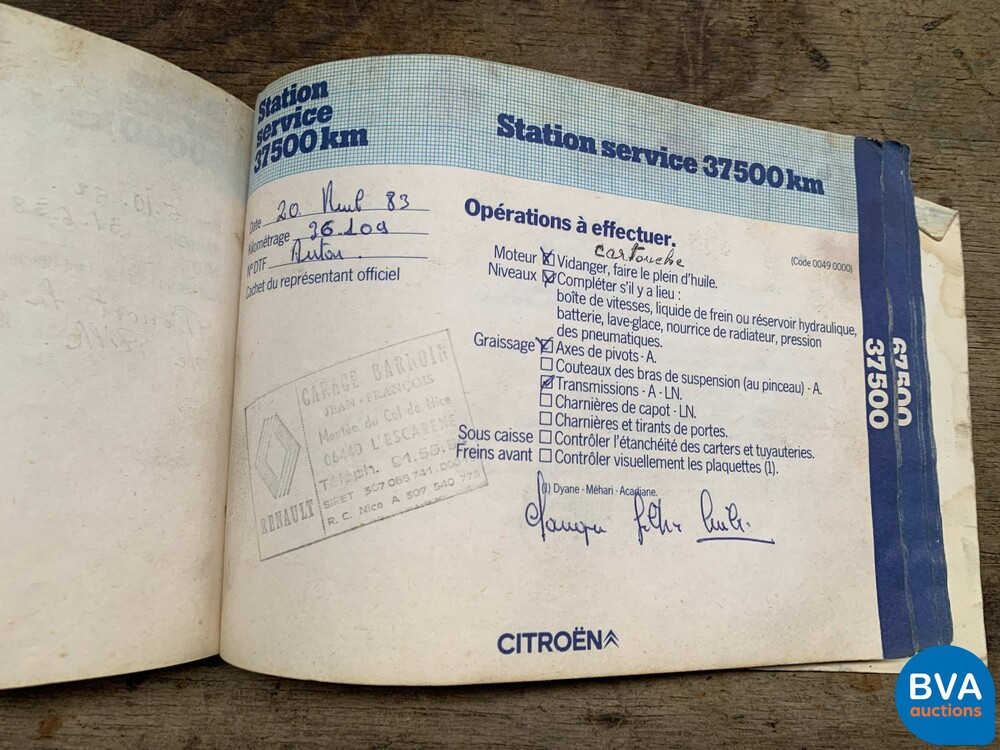 Station
service
37500 km
Date 20. 83
Kilométrage 36.109
N° DTF
Cachet du représentant officiel
GARAGE CARNOIN
JEAN-FRANÇOIS
Montée du Col de Nice
06440 L'ESCARENE
Téléph. 91.50.
SIRET 307 065 741 000
R. C. Nice A 307 540 775
RENAULT
Station service 37500 km
Opérations à effectuer.
cartouche
(Code 0049 0000)
Moteur Vidanger, faire le plein d'huile.
Niveaux Compléter s'il y a lieu :
boîte de vitesses, liquide de frein ou réservoir hydraulique,
batterie, lave-glace, nourrice de radiateur, pression
des pneumatiques.
Graissage Axes de pivots · A.
Couteaux des bras de suspension (au pinceau) · A.
Transmissions · A · LN.
Charnières de capot · LN.
Charnières et tirants de portes.
Sous caisse Contrôler l'étanchéité des carters et tuyauteries.
Freins avant Contrôler visuellement les plaquettes (1).
(1) Dyane · Méhari · Acadiane.
filtre huile.
CITROËN
37500
67500
BVA
auctions